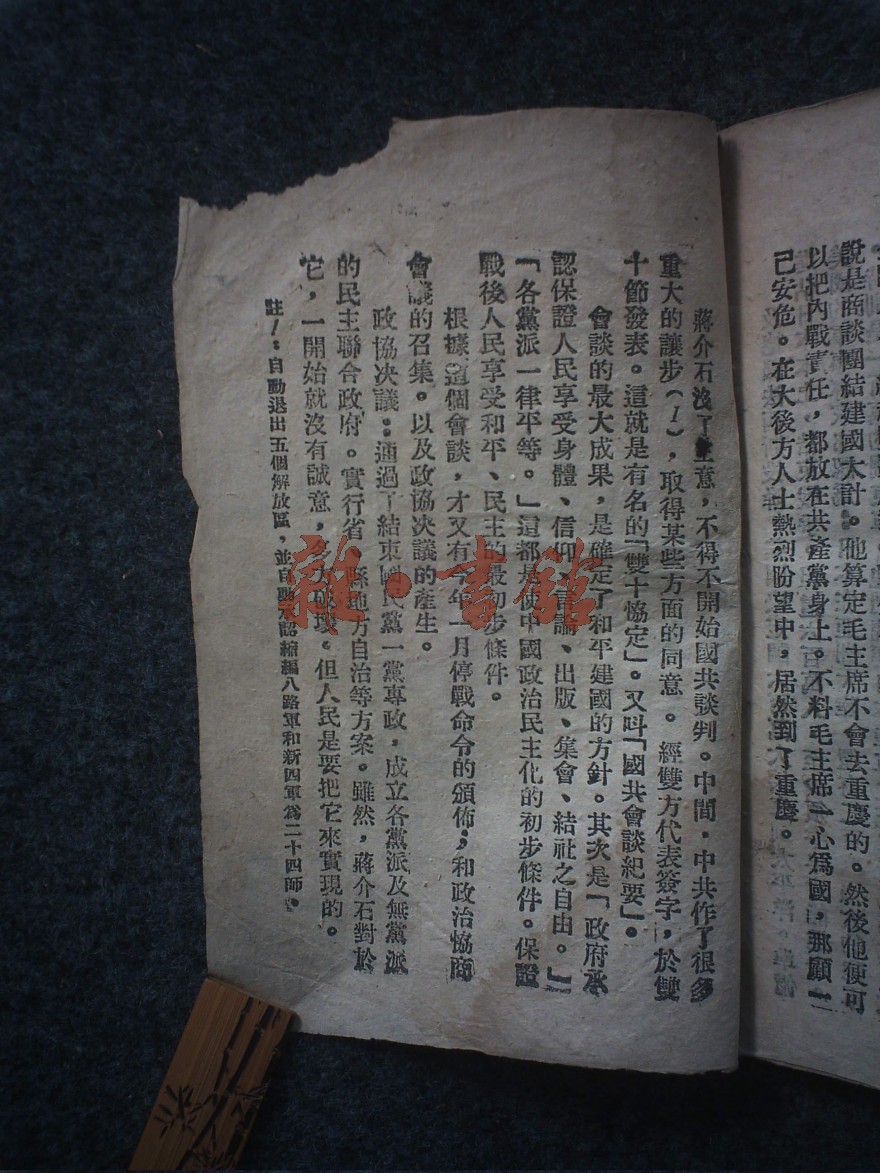 說是商談團結建國大計。他算定毛主席不會去重慶的。然後他便可
以把內戰責任，都放在共產黨身上。不料毛主席一心爲國，那顧一
己安危。在大後方人士熱烈盼望中，居然到了重慶。
蔣介石沒了主意，不得不開始國共談判。中間，中共作了很多
重大的讓步(1)，取得某些方面的同意。經雙方代表簽字，於雙
十節發表。這就是有名的「雙十協定」。又叫「國共會談紀要」。
會談的最大成果，是確定了和平建國的方針。其次是「政府承
認保證人民享受身體、信仰、言論、出版、集會、結社之自由。」
「各黨派一律平等。」這都是使中國政治民主化的初步條件。保證
戰後人民享受和平、民主的最初步條件。
根據這個會談，才又有今年一月停戰命令的頒佈；和政治協商
會議的召集。以及政協決議的產生。
政協決議：通過了結束國民黨一黨專政，成立各黨派及無黨派
的民主聯合政府。實行省、縣地方自治等方案。雖然，蔣介石對於
它，一開始就沒有誠意，多方破壞。但人民是要把它來實現的。
註1：自動退出五個解放區，並自動承認縮編八路軍和新四軍爲二十四師。
雜·書館